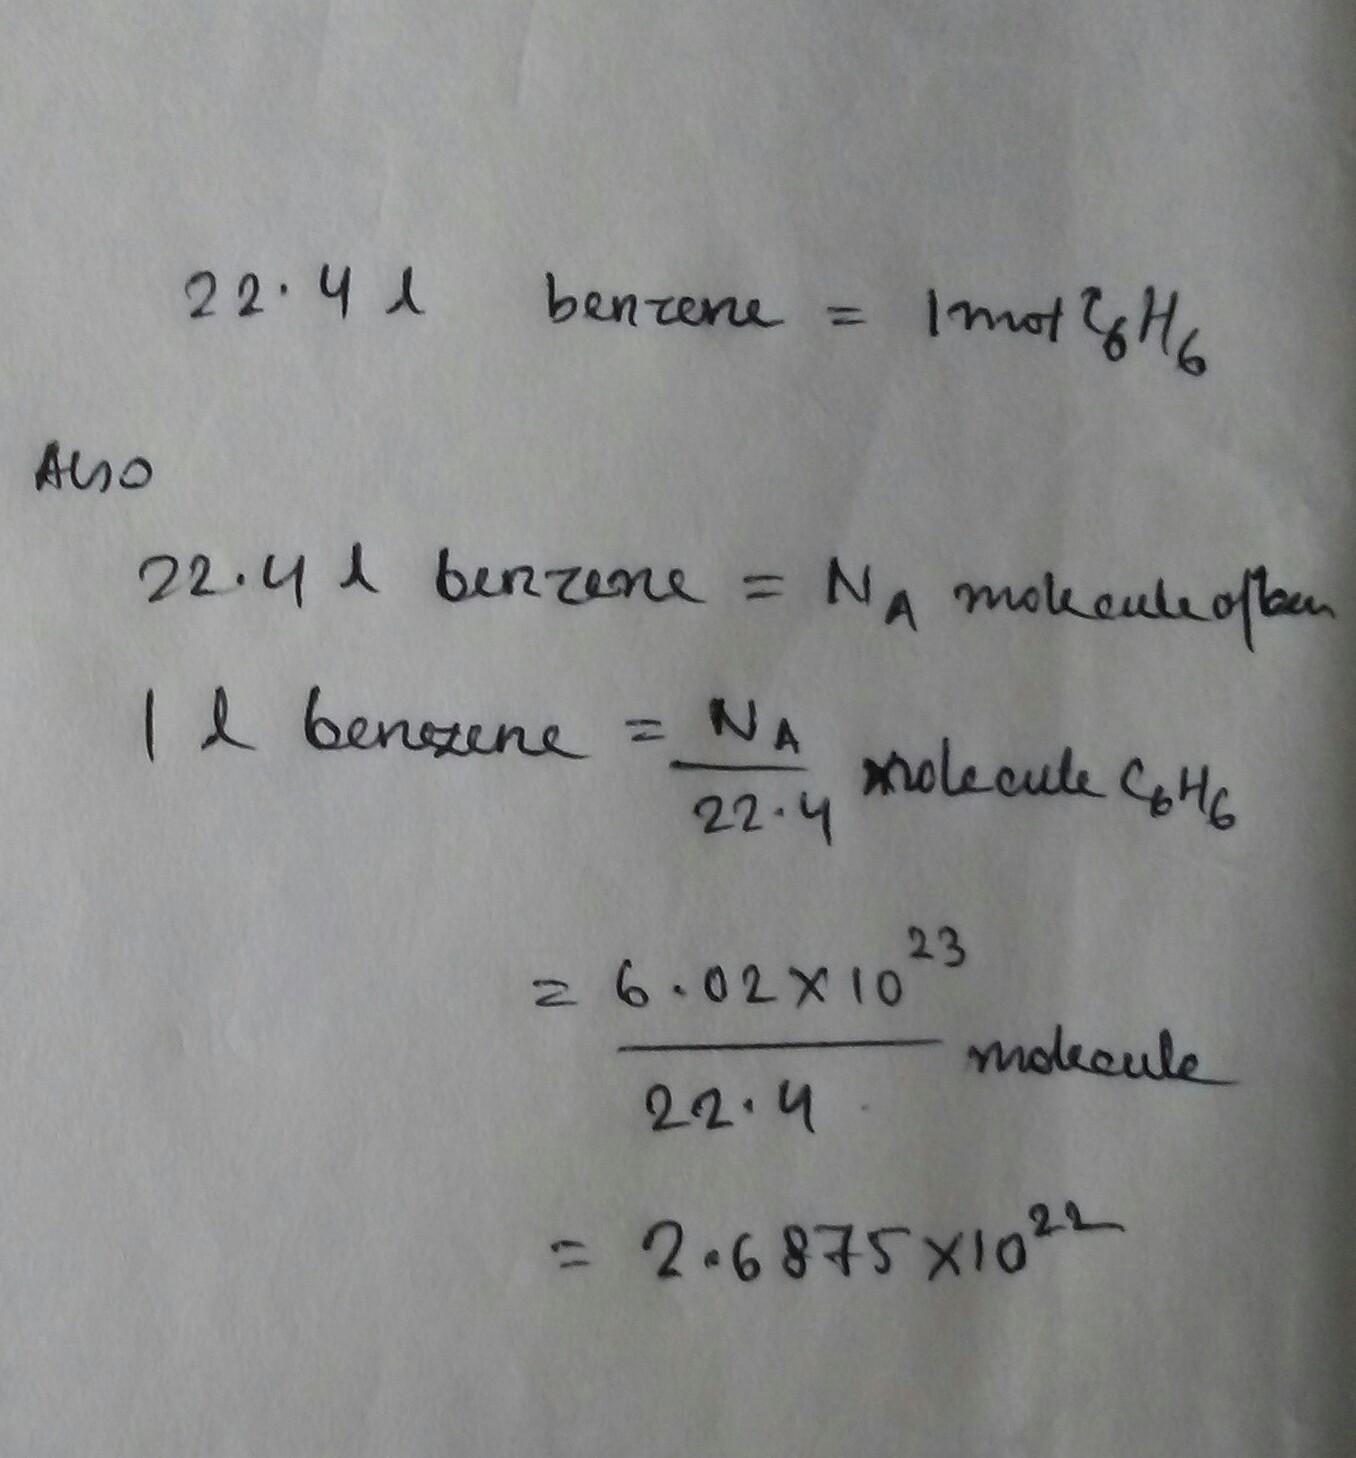 22.4 l benzene = 1 mol C6H6
Also
22.4 l benzene = NA molecule of ben
1 l benezene = NA/22.4 molecule C6H6
= 6.02×10^23/22.4 molecule
= 2.6875×10^22